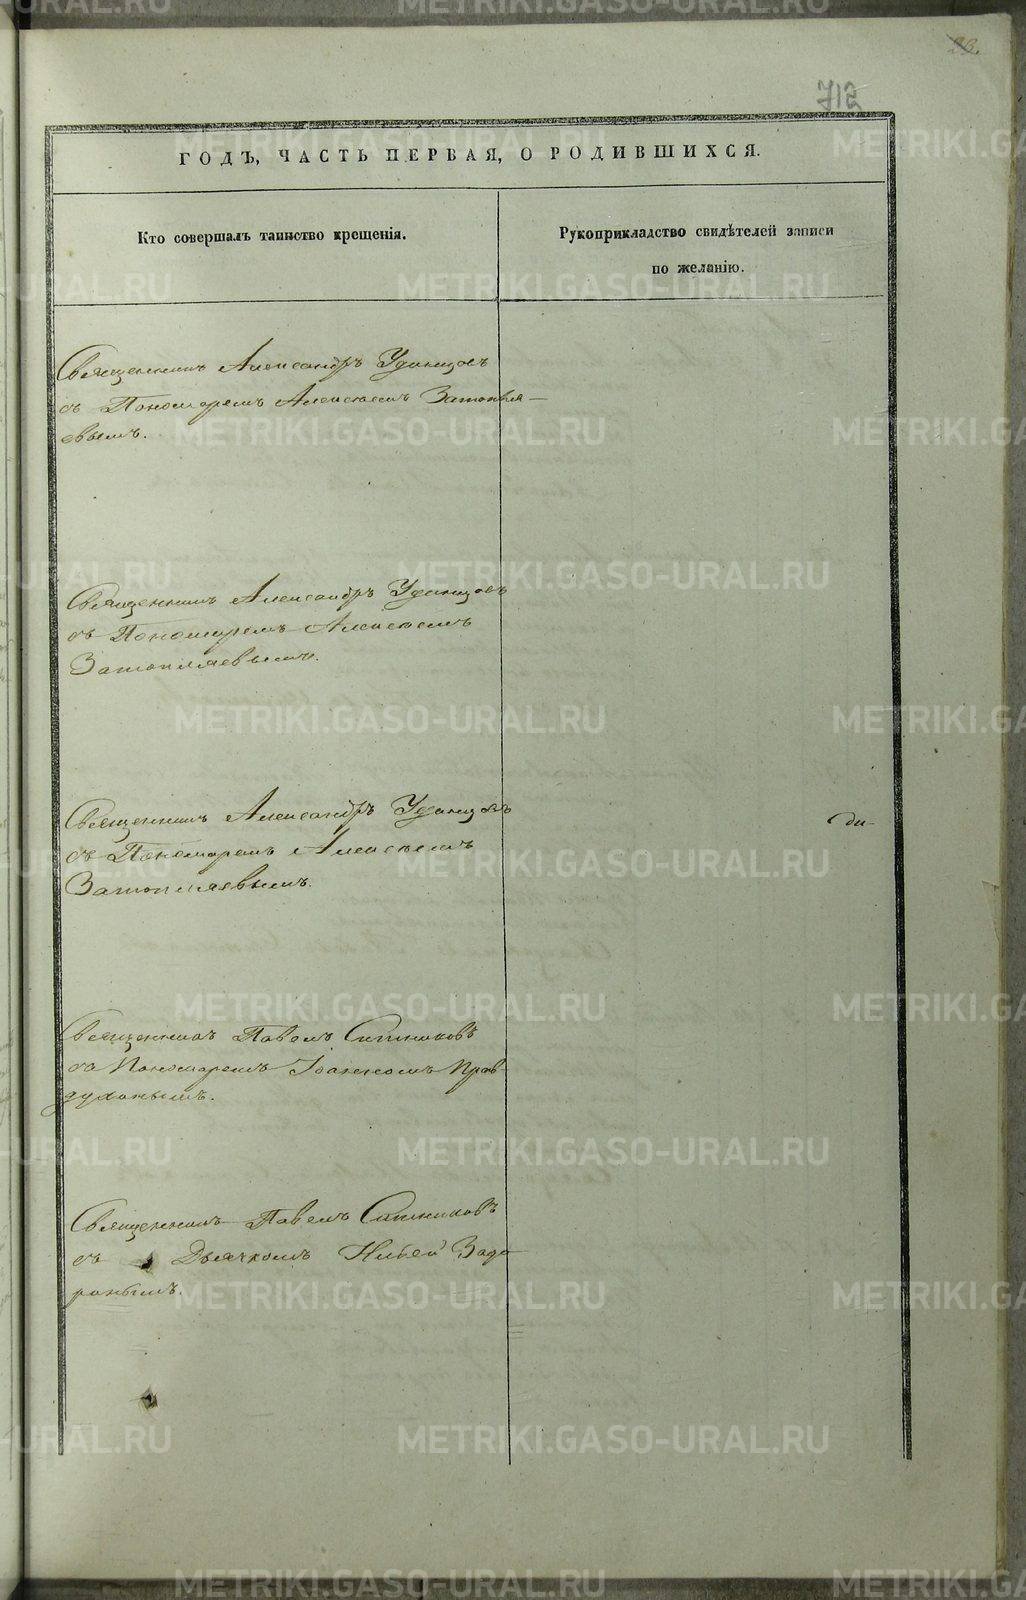 23.
712
ГОДЪ, ЧАСТЬ ПЕРВАЯ, О РОДИВШИХСЯ.
Кто совершалъ таинство крещенія.
Рукоприкладство свидѣтелей записи
по желанію.
Священникъ Александръ Удинцовъ
съ Пономаремъ Алексѣемъ Затопля-
евымъ.
Священникъ Александръ Удинцовъ
съ Пономаремъ Алексѣемъ
Затопляевымъ.
Священникъ Александръ Удинцовъ
съ Пономаремъ Алексѣемъ
Затопляевымъ.
ди-
Священникъ Павелъ Ситниковъ
съ Пономаремъ Іоанномъ Прав-
духинымъ.
Священникъ Павелъ Ситниковъ
съ Дьячкомъ
METRIKI.GASO-URAL.RU